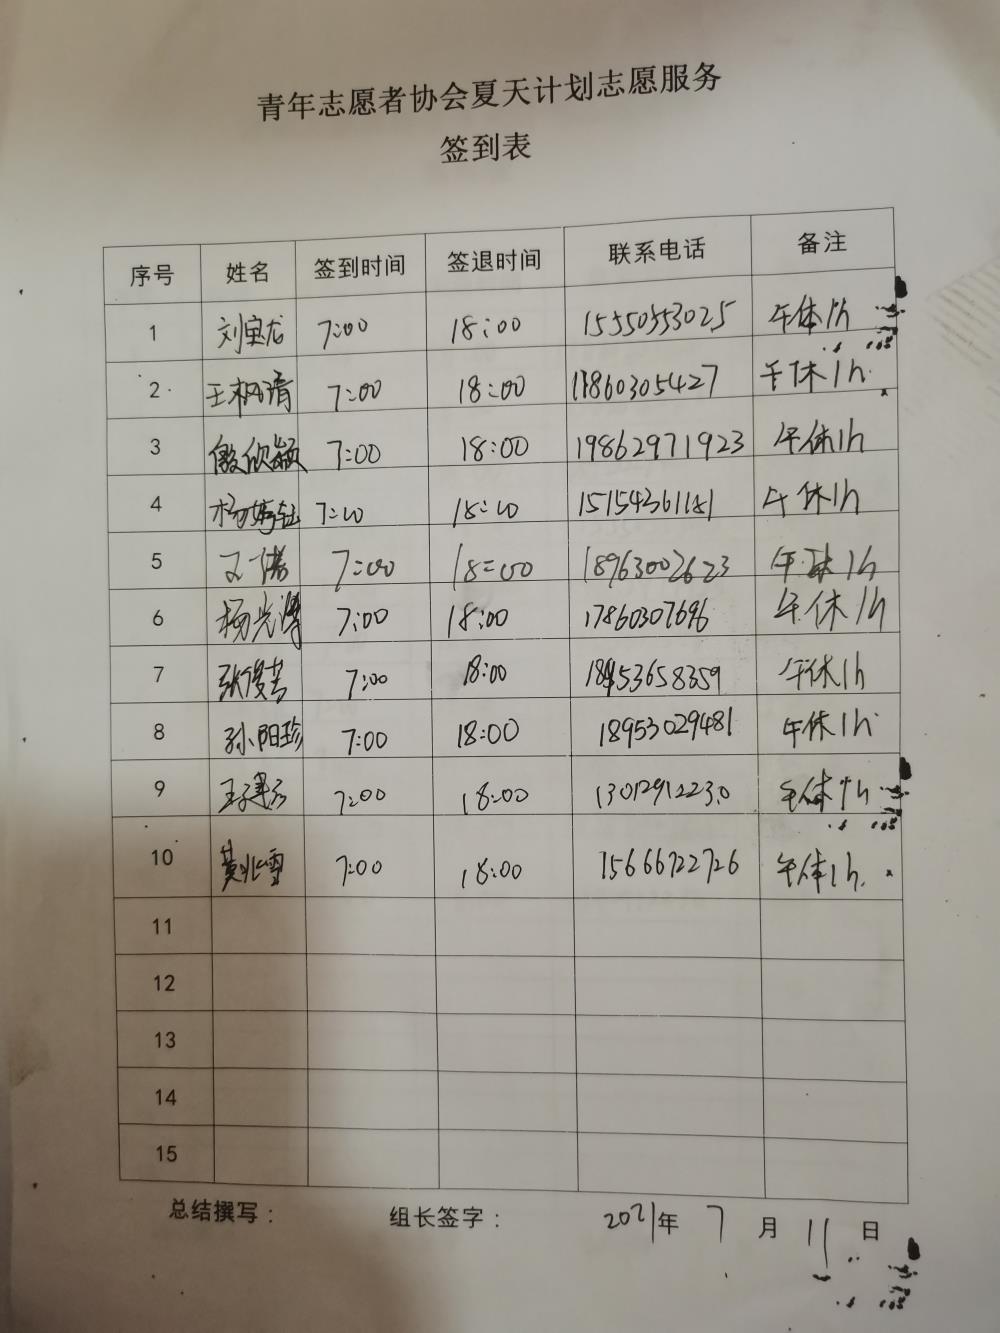 青年志愿者协会夏天计划志愿服务
签到表
序号 姓名 签到时间 签退时间 联系电话 备注
1 刘宝龙 7:00 18:00 15550553025 午休1h
2 王枫清 7:00 18:00 17860305427 午休1h
3 7:00 18:00 19862971923 午休1h
4 杨婷钰 7:00 18:00 15154361181 午休1h
5 7:00 18:00 18963002623 午休1h
6 杨光泽 7:00 18:00 17860307696 午休1h
7 张俊芳 7:00 18:00 18453658359 午休1h
8 孙阳珍 7:00 18:00 18953029481 午休1h
9 7:00 18:00 13012912230 午休1h
10 黄兆雪 7:00 18:00 15666722726 午休1h
11
12
13
14
15
总结撰写： 组长签字： 2021年 7 月 11 日